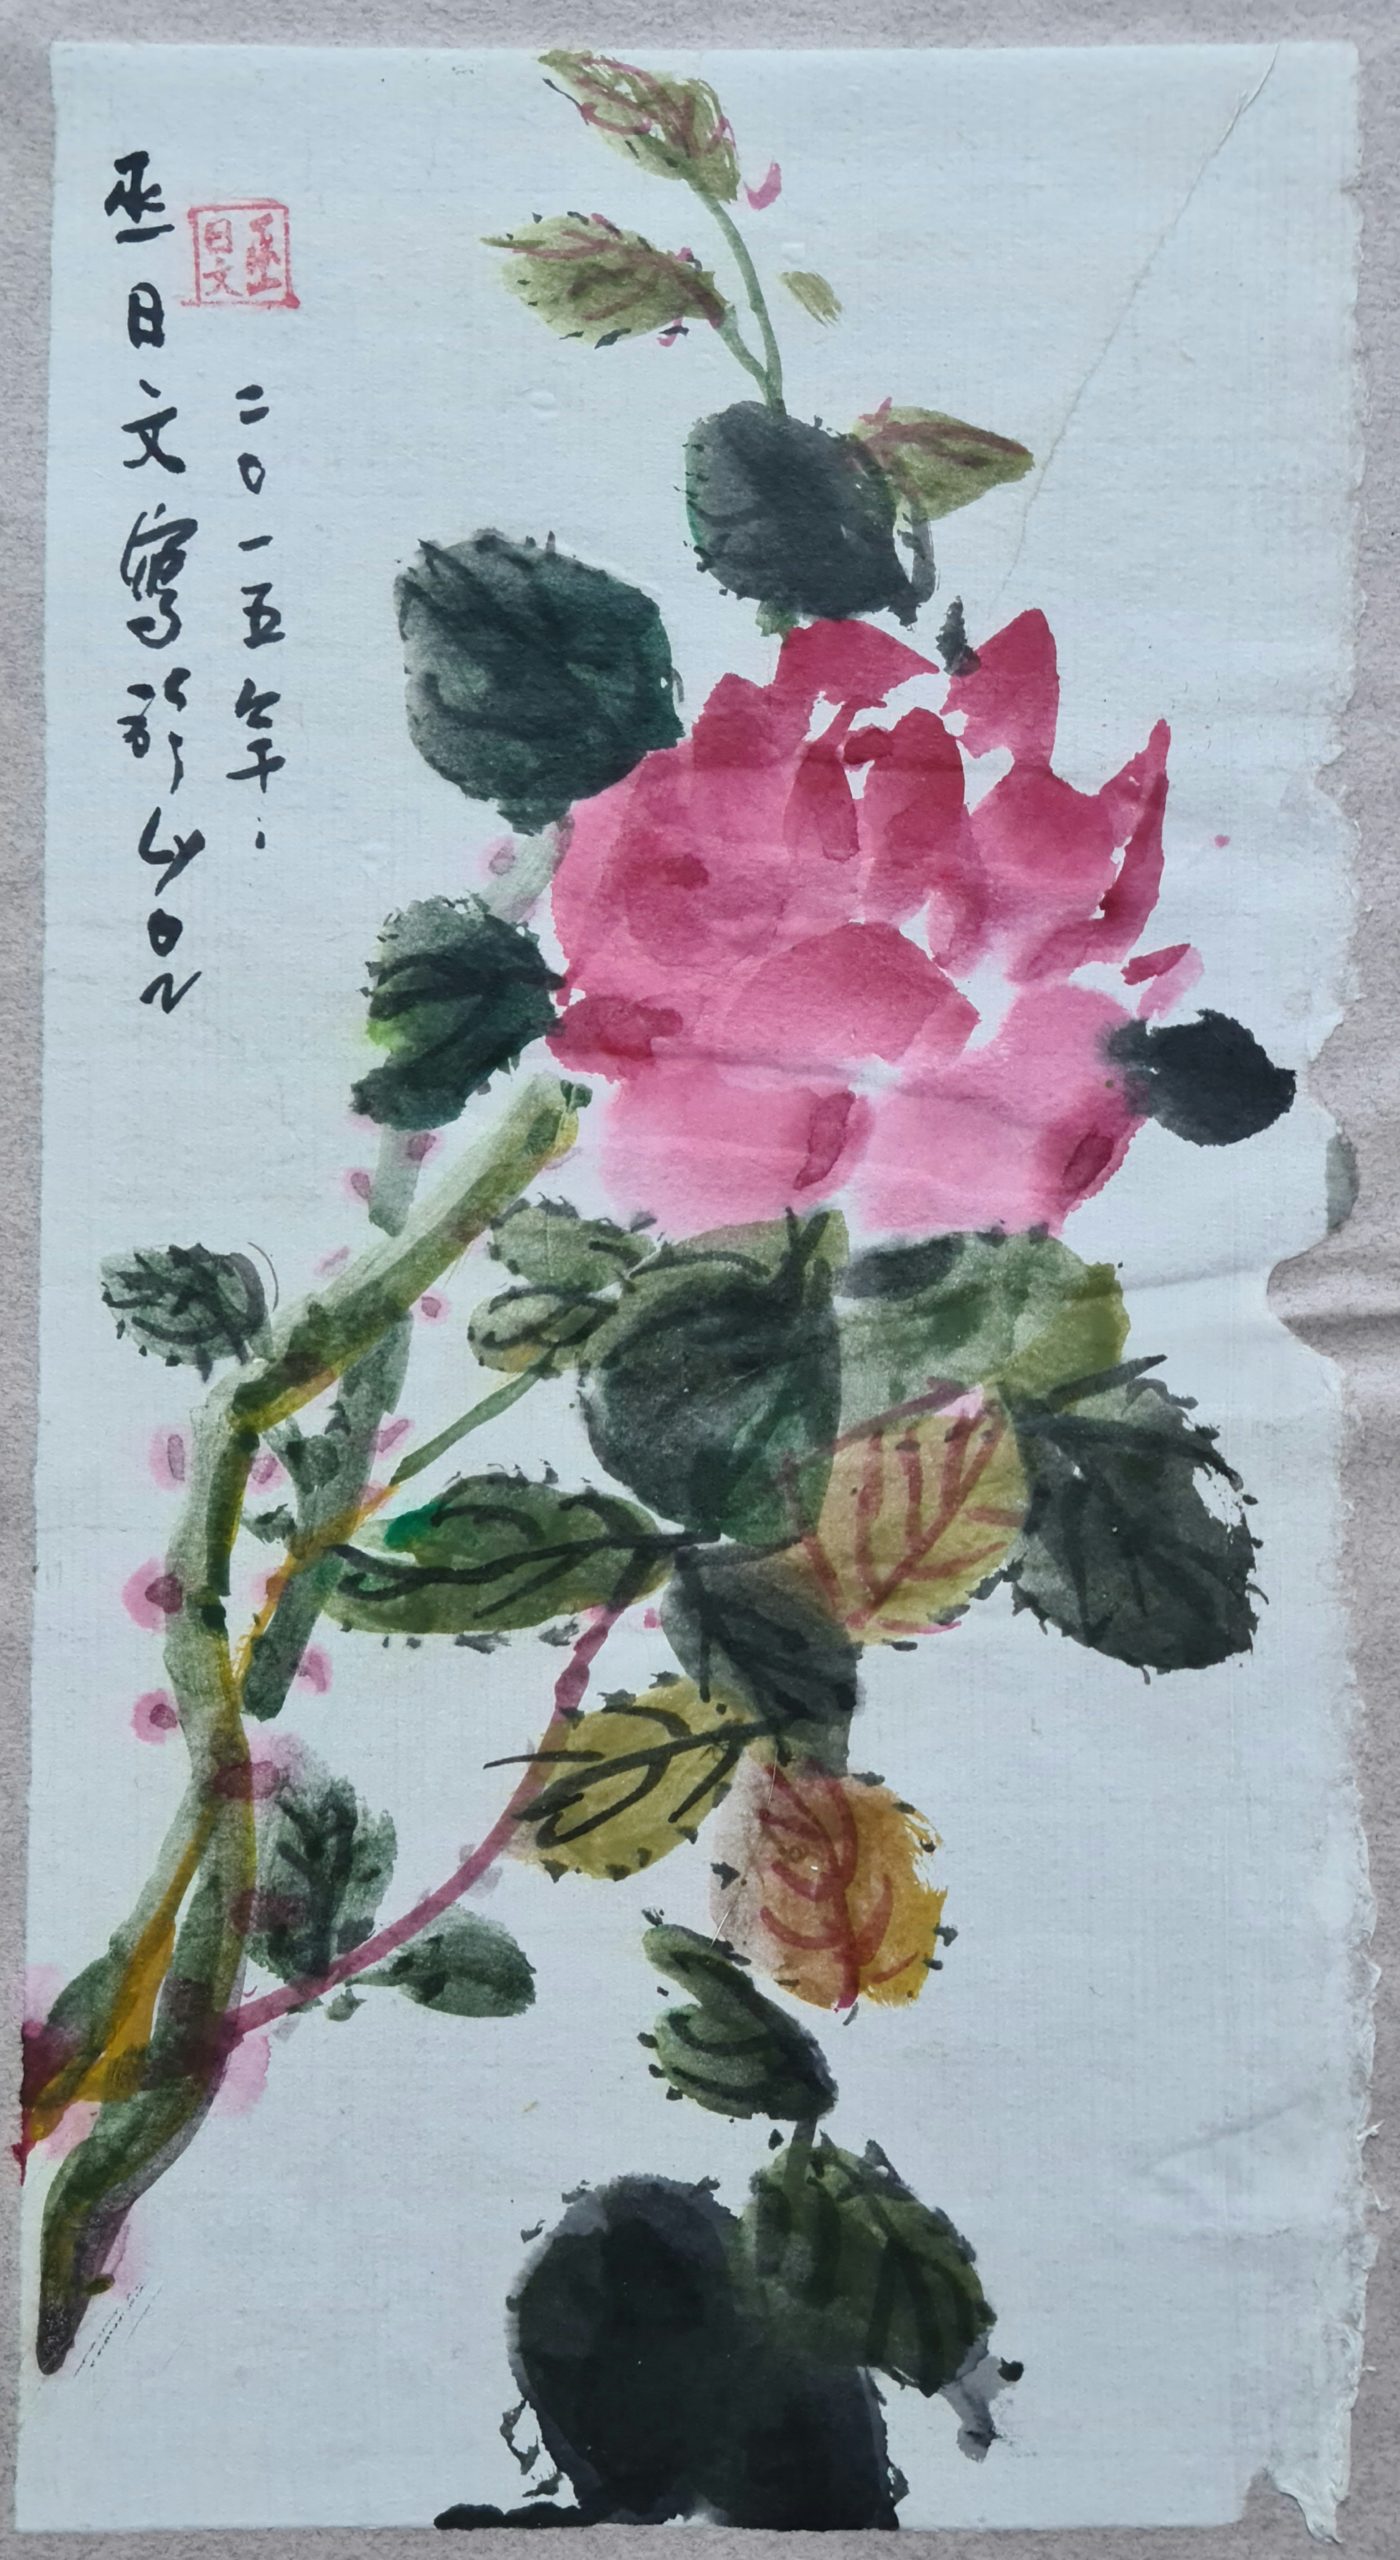 二〇一五年.
丞日文寫於 LyON
丞
日文